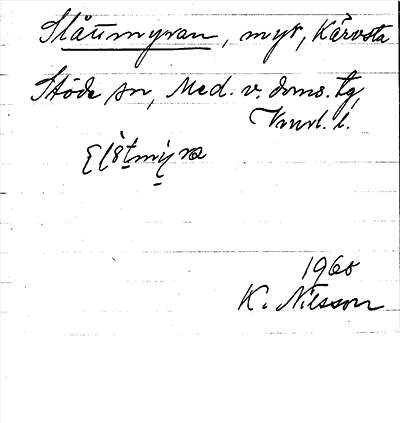 Slåttmyran, myr, Kärvsta
Stöde sn, Med. v. doms. tg,
Vnrl. l.
1960
K. Nilsson